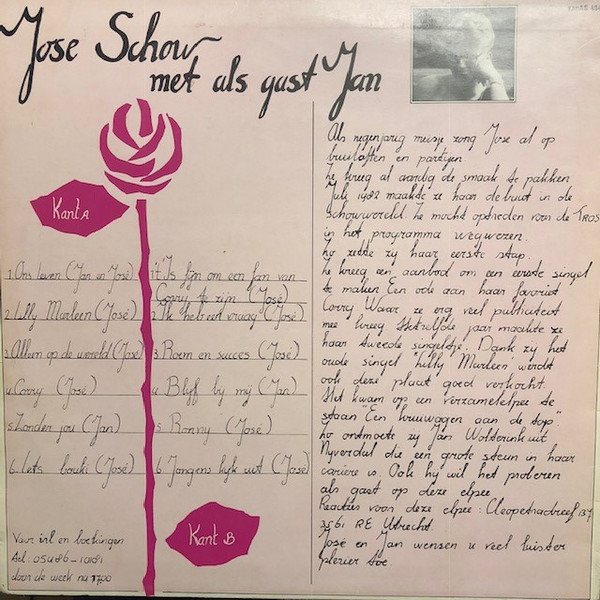 Jose Schouw
met als gast Jan
Kant A
1. Ons leven (Jan en José)
2. Lilly Marleen (José)
3. Alleen op de wereld (José)
4. Corry (José)
5. Zonder jou (Jan)
6. Iets bouki (José)
1. 't Is fijn om een fan van
Corry te zijn (José)
2. Ik heb een vraag (José)
3. Roem en succes (José)
4. Blijf bij mij (Jan)
5. Ronny (José)
6. Jongens kijk uit (José)
Kant B
Voor inl en boekingen
tel: 05486-10181
door de week na 1700
Als negenjarig meisje zong Jose al op
bruiloften en partijen.
Ze kreeg al aardig de smaak te pakken
Juli 1982 maakte ze haar debuut in de
schowwereld. Ze mocht optreden voor de TROS
in het programma wegwezen.
Zo zette zij haar eerste stap.
Ze kreeg een aanbod om een eerste singel
te maken Een ode aan haar favoriet
Corry Waar ze erg veel publiciteit
mee kreeg Hetzelfde jaar maakte ze
haar tweede singeltje. Dank zij het
oude singel "Lilly Marleen" werdt
ook deze plaat goed verkocht.
Het kwam op een verzamelelpee te
staan "Een kruiwagen aan de top"
Zo ontmoette zij Jan Wolterink uit
Nyverdal die een grote steun in haar
cariere is. Ook hy wil het proberen
als gast op deze elpee
Reacties voor deze elpee: Cleopatradreef 137
3561 RE Utrecht
José en Jan wensen u veel luister
plezier toe.